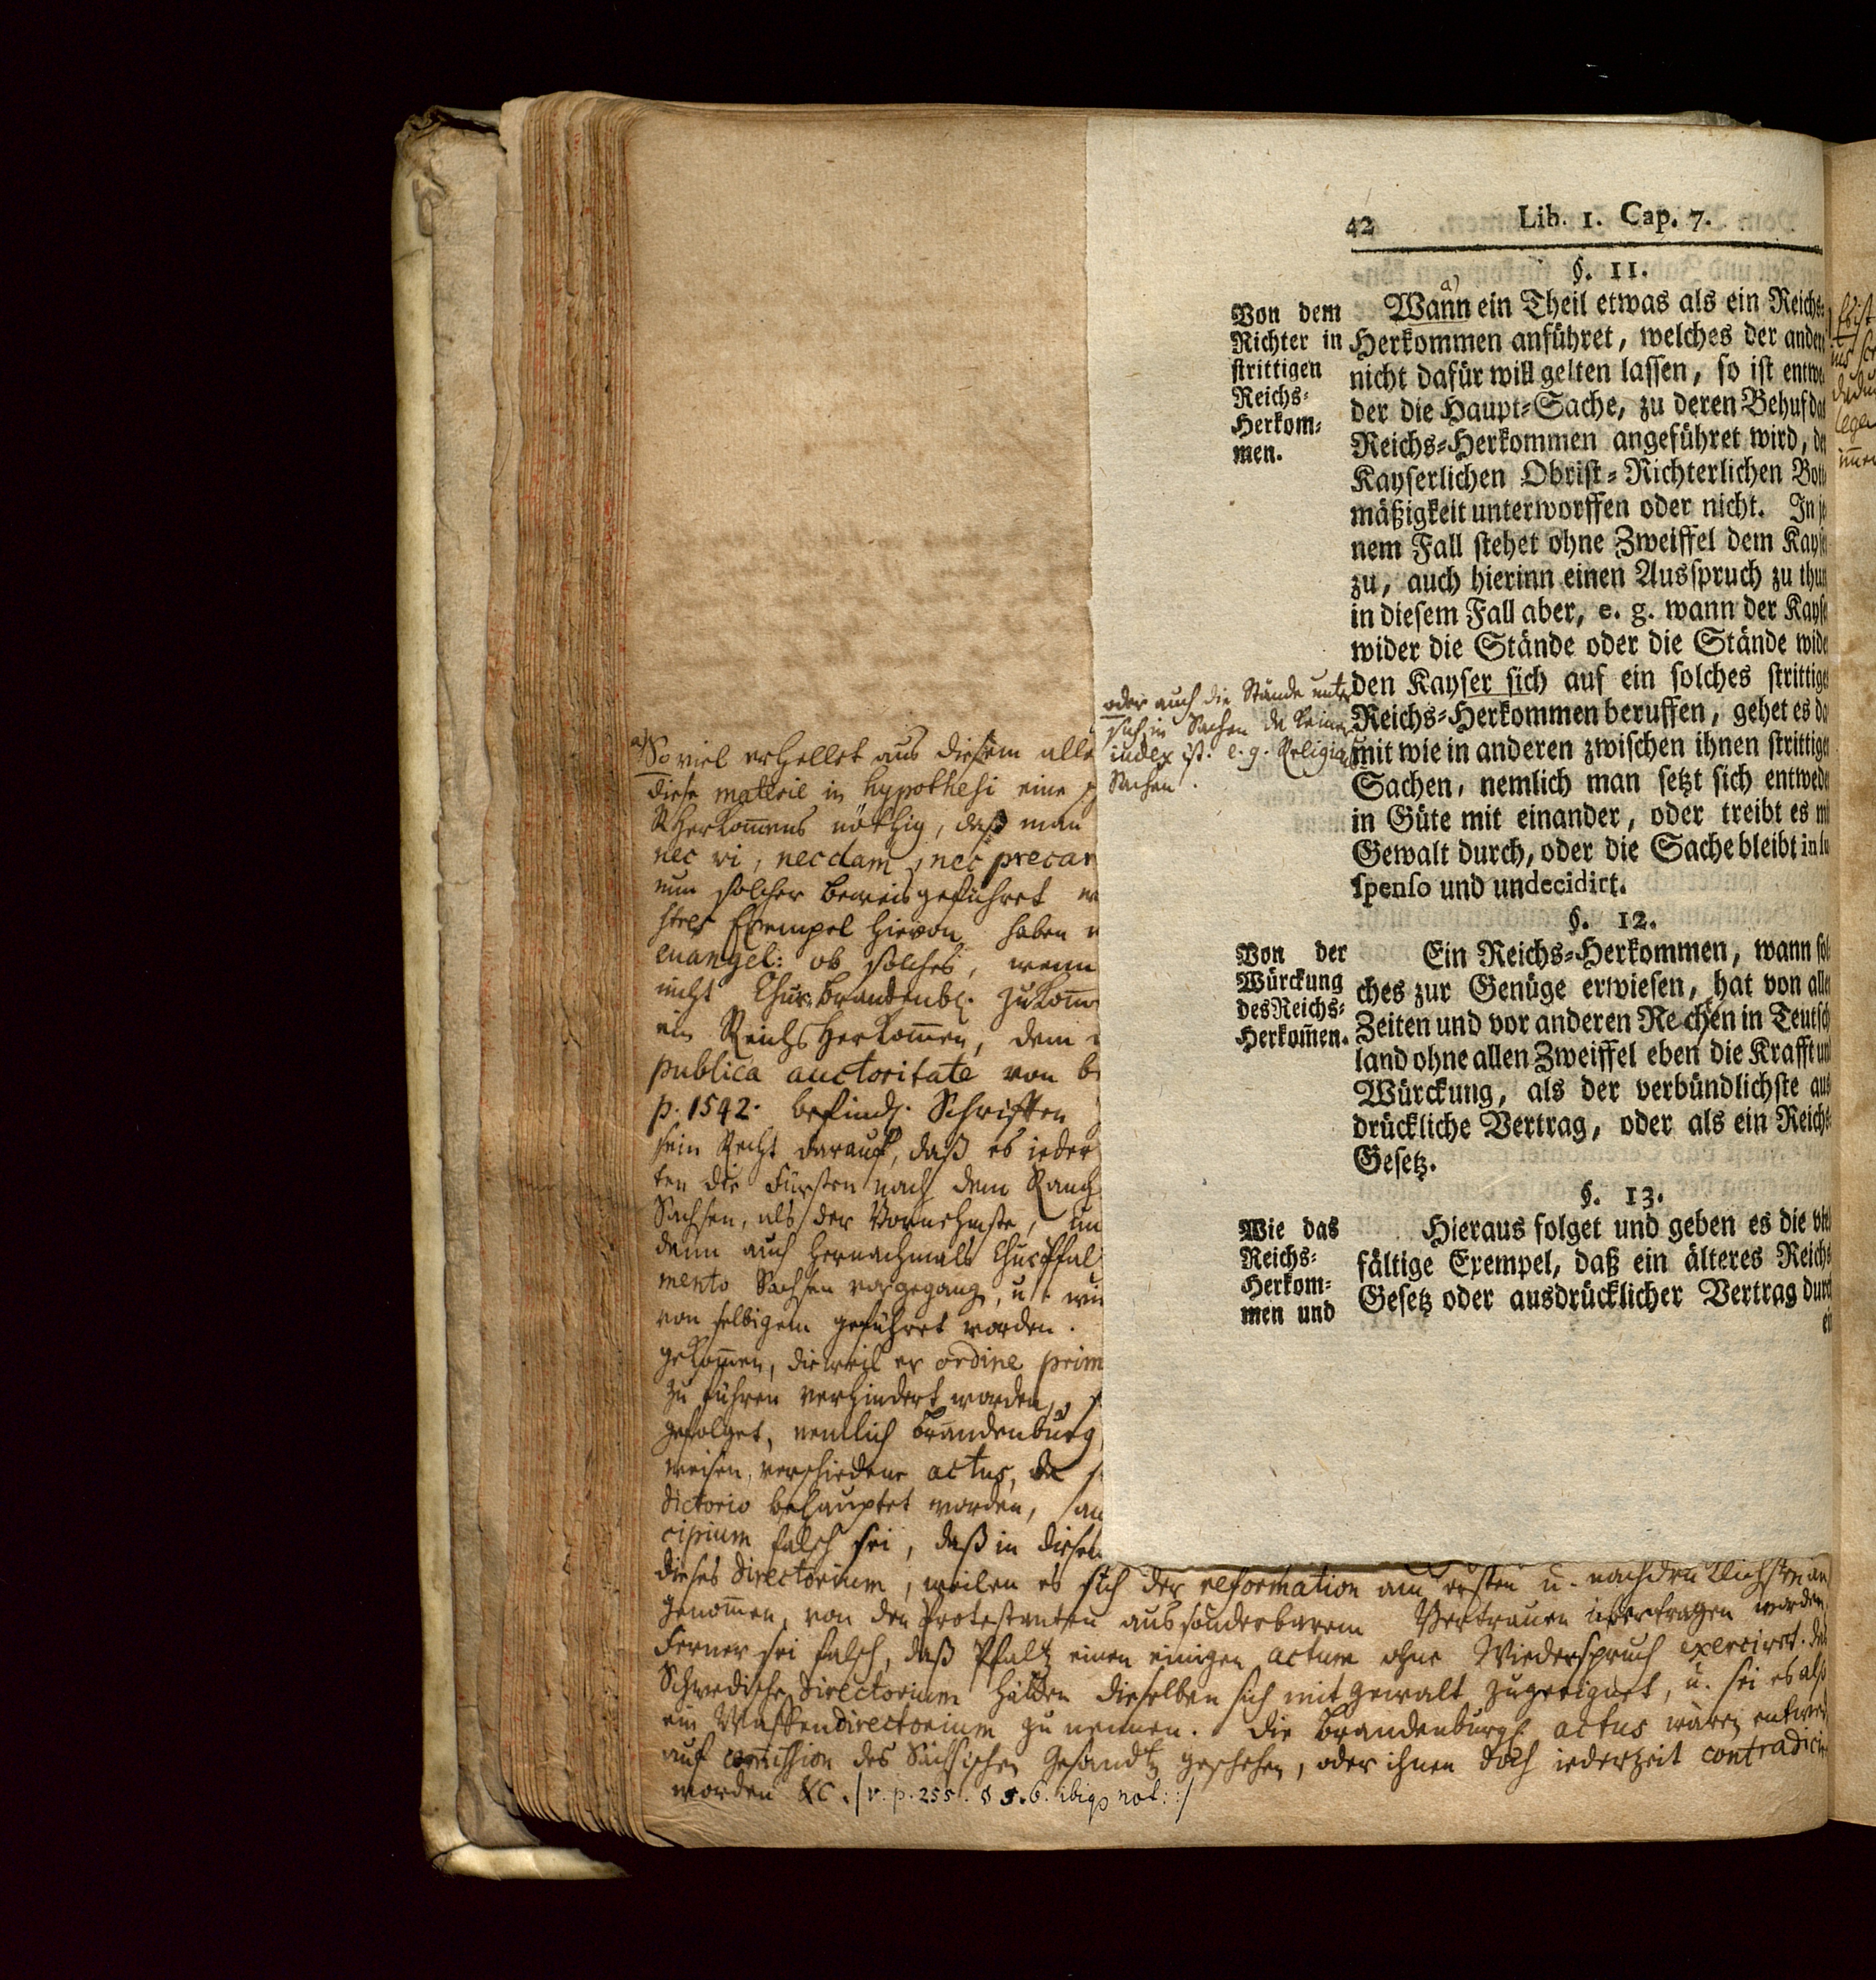 42 Lib. 1. Cap. 7.
§. 11.
a)
Von dem
Richter in
strittigen
Reichs-
Herkom-
men.
Wann ein Theil etwas als ein Reichs-
Herkommen anführet, welches der andere
nicht dafür will gelten lassen, so ist entwe
der die Haupt-Sache, zu deren Behuf das
Reichs-Herkommen angeführet wird, de
Kayserlichen Obrist-Richterlichen Bott
mäßigkeit unterworffen oder nicht. In je
nem Fall stehet ohne Zweiffel dem Kayse
zu, auch hierinn einen Ausspruch zu thun
in diesem Fall aber, e. g. wann der Kayse
wider die Stände oder die Stände wide
den Kayser sich auf ein solches strittige
Reichs-Herkommen beruffen, gehet es da
mit wie in anderen zwischen ihnen strittige
Sachen, nemlich man setzt sich entwede
in Güte mit einander, oder treibt es mi
Gewalt durch, oder die Sache bleibt in su
spenso und undecidirt.
oder auch die Stände unter
sich, in Sachen da keiner
iudex ist. e. g. Religions
Sachen.
§. 12.
Von der
Würckung
des Reichs-
Herkom̃en.
Ein Reichs-Herkommen, wann sol
ches zur Genüge erwiesen, hat von alle
Zeiten und vor anderen Re chen in Teutsch
land ohne allen Zweiffel eben die Krafft und
Würckung, als der verbündlichste aus
drückliche Vertrag, oder als ein Reichs-
Gesetz.
§. 13.
Wie das
Reichs-
Herkom-
men und
Hieraus folget und geben es die viel
fältige Exempel, daß ein älteres Reichs
Gesetz oder ausdrücklicher Vertrag durch
ei
a) So viel erhellet aus diesem alle
diese materie in hypothesi eine
RHerkom̃ens nöthig, daß man
nec vi, nec clam, nec precar
nun solcher beweis geführet
Exempel hievon haben
evangel: ob solches, wenn
nicht Chur-Brandenb. zukom̃
ein Reichsherkom̃en, dem
publica auctoritate von b
p. 1542. befindl. Schrifften
sein Recht darauf, daß es ieder
ten die Fürsten nach dem Rang
Sachsen, als der Vornehmste, un
denn auch hernachmals ChurPfal
mento Sachsen vorgegang, u. wie
von selbigem geführet worden.
gekom̃en, dieweil er ordine prim
zu führen verhindert worden,
gefolget, nemlich Brandenburg
weisen, verschiedene actus, da
dictorio behauptet worden, an
cipium falsch sei, daß in diesem
dieses directorium, weilen es sich der reformation am ersten u. nachdrücklichsten an
genom̃en, von den Protestanten aus sonderbarem Vertrauen übertragen worden,
Ferner sei falsch, daß Pfaltz einen einigen actum ohne Wiederspruch exerciret. das
Schwedische directorium hätten dieselben sich mit gewalt zugeeignet, u. sei es also
ein Waffendirectorium zu nennen. Die Brandenburg. actus wären entwed
auf com̃ission des Sächsischen Gesandtẽ geschehen, oder ihnen doch iederzeit contradici
worden &c. /v. p. 255. § 5. 6. ibiq3 not: :/